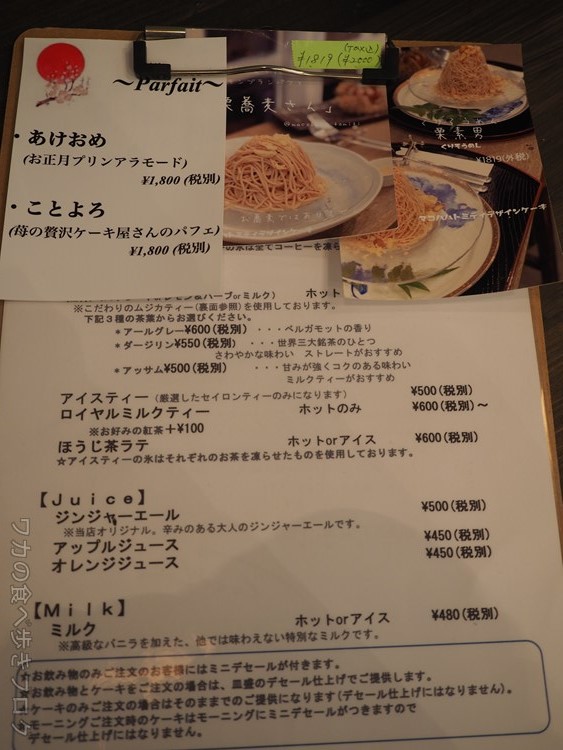 ～Parfait～
・あけおめ
(お正月プリンアラモード)
¥1,800 (税別)
・ことよろ
(苺の贅沢ケーキ屋さんのパフェ)
¥1,800 (税別)
(TAX込)
¥1819 (¥2000)
栗蕎麦さん」
栗素男
くりそうめん
¥1819(外税)
デザインケーキ
ホット
※こだわりのムジカティー(裏面参照)を使用しております。
下記3種の茶葉からお選びください。
*アールグレー¥600(税別) ・・・ベルガモットの香り
*ダージリン¥550(税別) ・・・世界三大銘茶のひとつ
さわやかな味わい ストレートがおすすめ
*アッサム¥500(税別) ・・・甘みが強くコクのある味わい
ミルクティーがおすすめ
アイスティー(厳選したセイロンティーのみになります) ¥500(税別)
ロイヤルミルクティー ホットのみ ¥600(税別)～
※お好みの紅茶+¥100
ほうじ茶ラテ ホットorアイス ¥600(税別)
☆アイスティーの氷はそれぞれのお茶を凍らせたものを使用しております。
【Juice】
ジンジャーエール ¥500(税別)
※当店オリジナル。辛みのある大人のジンジャーエールです。
アップルジュース ¥450(税別)
オレンジジュース ¥450(税別)
【Milk】
ミルク ホットorアイス ¥480(税別)
※高級なバニラを加えた、他では味わえない特別なミルクです。
★お飲み物のみご注文のお客様にはミニデセールが付きます。
★お飲み物とケーキをご注文の場合は、皿盛のデセール仕上げでご提供します。
★ケーキのみご注文の場合はそのままでのご提供になります(デセール仕上げにはなりません)。
★モーニングご注文時のケーキはモーニングにミニデセールがつきますので
デセール仕上げにはなりません。
ワカの食べ歩きブログ